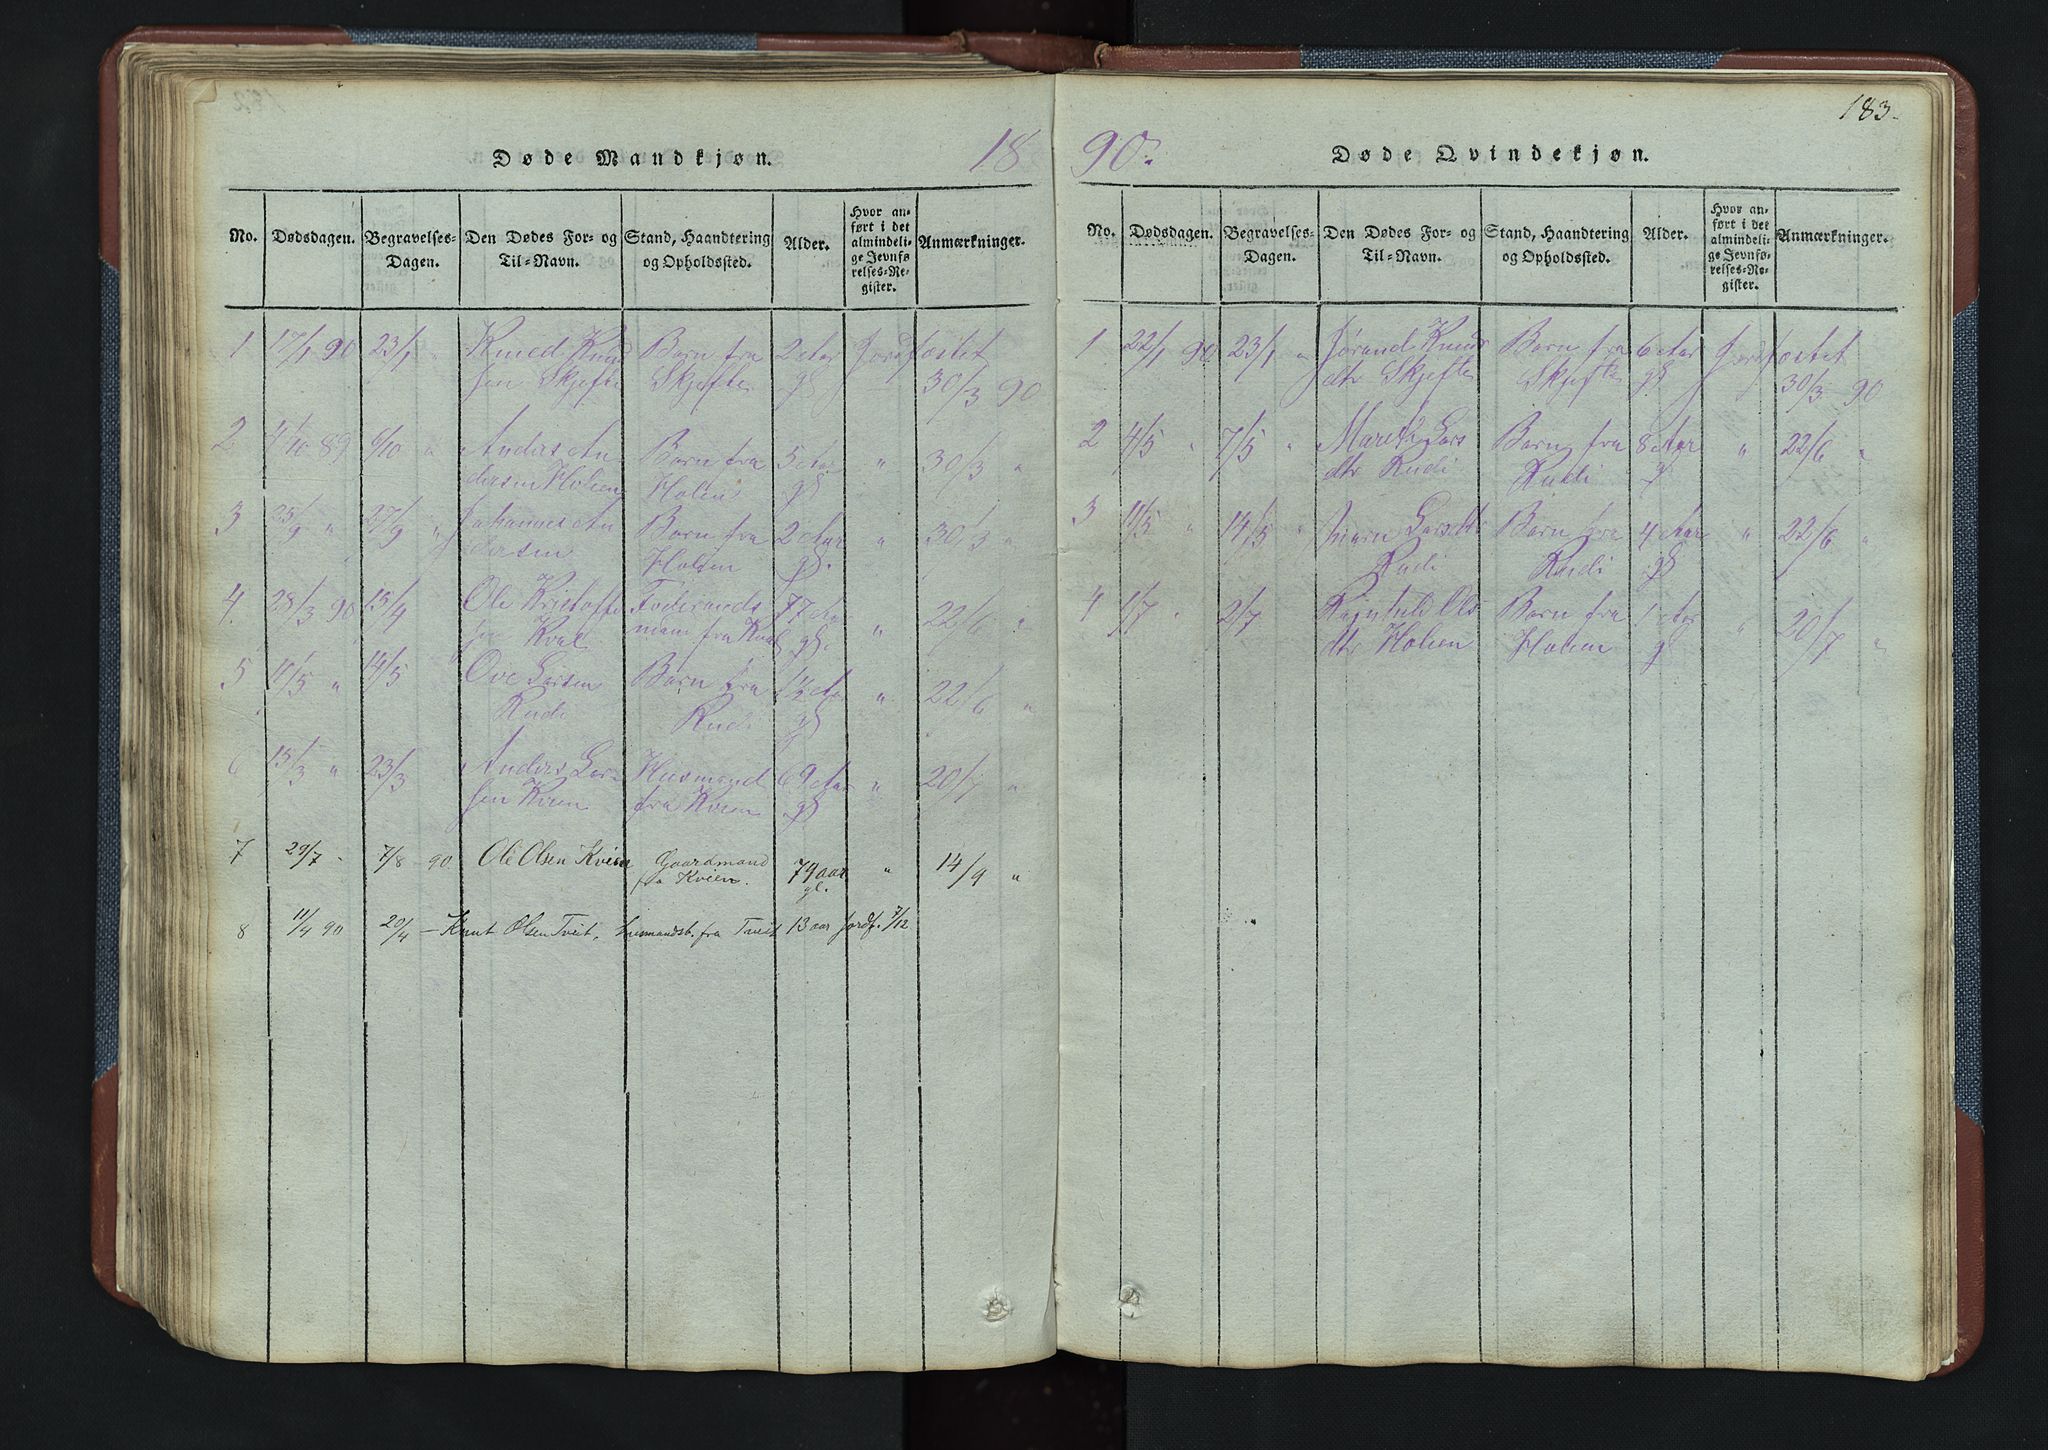 183.
Døde Mandkjøn.
1890.
Døde Qvindekjøn.
No. Dødsdagen. Begravelses-Dagen. Den Dødes For- og Til-Navn. Stand, Haandtering og Opholdssted. Alder. Hvor anført i det almindelige Jevnførelses-Register. Anmærkninger.
1 17/1 90 23/1 " Knud Knud Barn fra 2 Aar Jordfæstet
sen Skjefte Skjefte gl 30/3 90
2 4/10 89 6/10 " Anders An Barn fra 5 Aar " 30/3 "
dersen Holien Holien gl
3 25/9 " 27/9 " Johannes An Barn fra 2 Aar " 30/3 "
dersen Holien gl.
4. 28/3 90 15/4 Ole Kristoffer Föderaads 77 Aar " 22/6 "
sen Kval mann fra Kval gl.
5 11/5 " 14/5 " Ove Larsen Barn fra 1½ Aar " 22/6 "
Rudi Rudi gl
6 15/3 " 23/3 " Anders Lar- Husmand 69 Aar " 20/7 "
sen Kvien fra Kvien gl
7 29/7 - 7/8 - 90 Ole Olsen Kvien Gaardmand 79 aar " 14/9 "
fra Kvien. gl.
8 11/4 90 20/4 - Knut Olsen Tveit, husmandsb. fra Tveit 13 aar Jordf. 7/12
No. Dødsdagen. Begravelses-Dagen. Den Dødes For- og Til-Navn. Stand, Haandtering og Opholdssted. Alder. Hvor anført i det almindelige Jevnførelses-Register. Anmærkninger.
1 22/1 90 23/1 " Jørand Knuds Barn fra 6 Aar Jordfæstet
dtr Skjefte Skjefte gl 30/3 90
2 4/5 " 7/5 " Marit Lars Barn fra 8 Aar " 22/6 "
dtr Rudi Rudi g
3 11/5 " 14/5 " Marn Larsdtr Barn fra 4 Aar " 22/6 "
Rudi Rudi gl
4 1/7 " 2/7 Ragnhild Ols- Barn fra 1 Aar " 20/7 "
dtr Holien Holien g